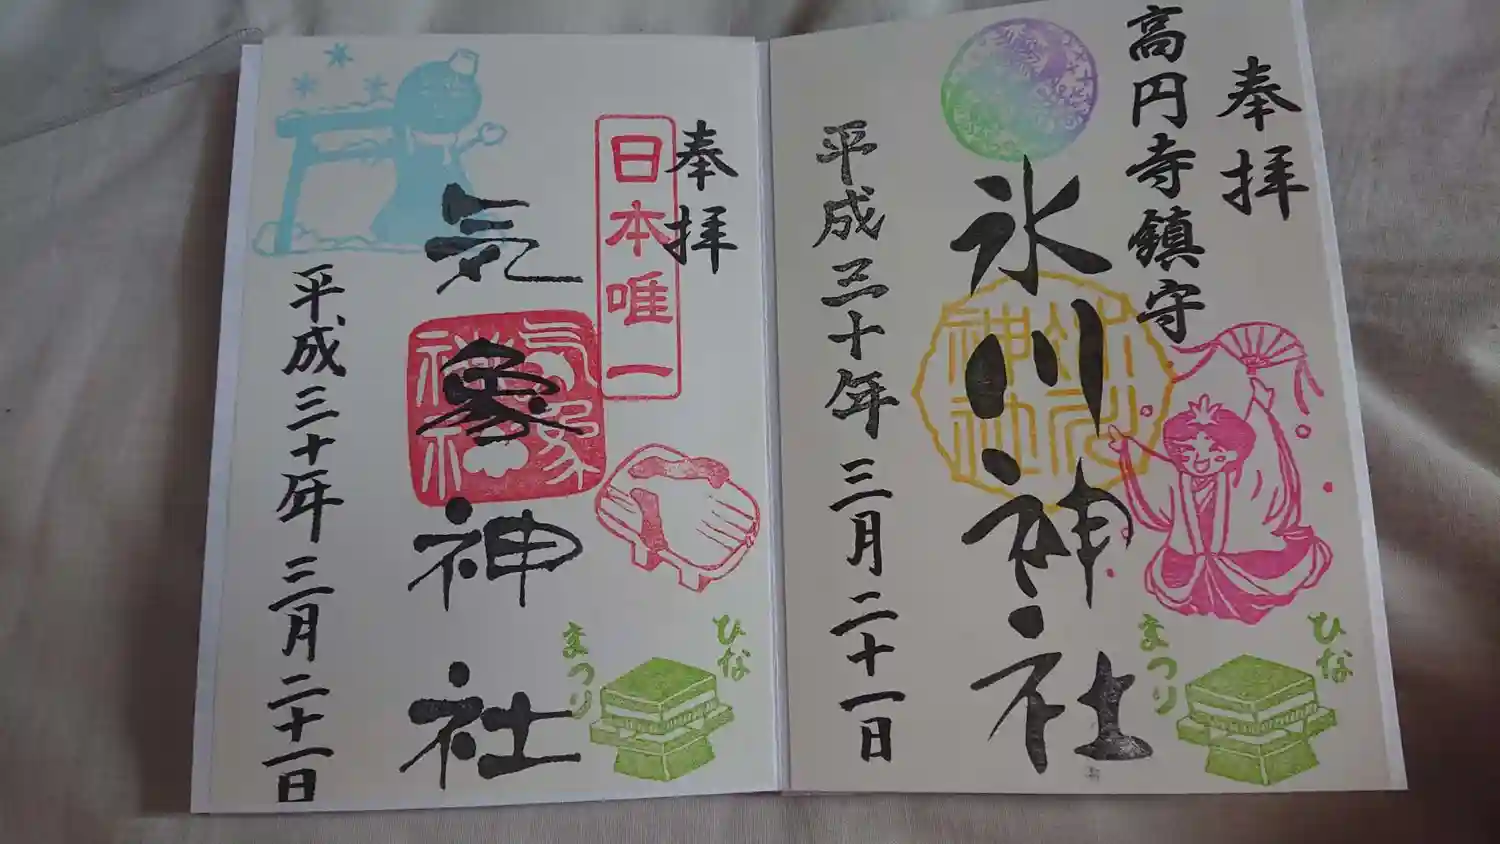 奉拝
高円寺鎮守
氷川神社
平成三十年三月二十一日
ひな
まつり
奉拝
日本唯一
気象神社
気象
神社
平成三十年三月二十一日
ひな
まつり